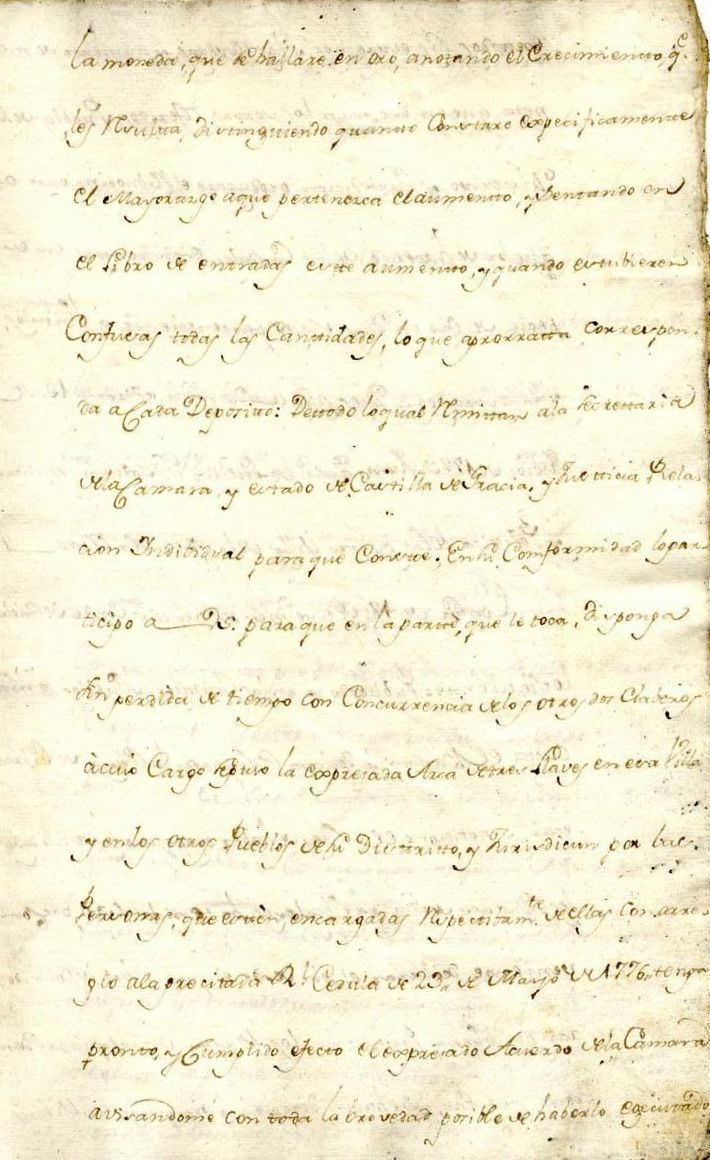 la moneda, que se hallare en oro, anotando el Crecimiento, q.e
les Resulta, distinguiendo quanto Constare expecificamente
el Mayorazgo a que pertenezca el aumento, y sentando en
el Libro de entradas este aumento, y quando estubieren
Confusas todas las Cantidades, lo que aprorratta correspon-
da a Cada Deposito: De ttodo lo qual Remittan a la Secrettaria
de la Camara, y estado de Castilla de Gracia, y Justticia Rela-
cion Indibidual para que Conste. En su Comformidad lo par-
ticipo a Vs. para que en la partte, que le toca, disponga
sin perdida de tiempo con Concurrencia de los otros dos Claberos
à cuio Cargo se puso la expresada Arca de tres llaves en esa Villa
y en los otros Pueblos de su Disttritto, y Jurisdicion por las
Personas, que estèn encargadas Respectibam.te de ellas con arre-
glo a la precitada R.l Cedula de 23 de Marzo de 1776, tenga
pronto, y Cumplido efecto el expresado Acuerdo de la Camara
avisandome con toda la brevedad posible de haberlo egecutado